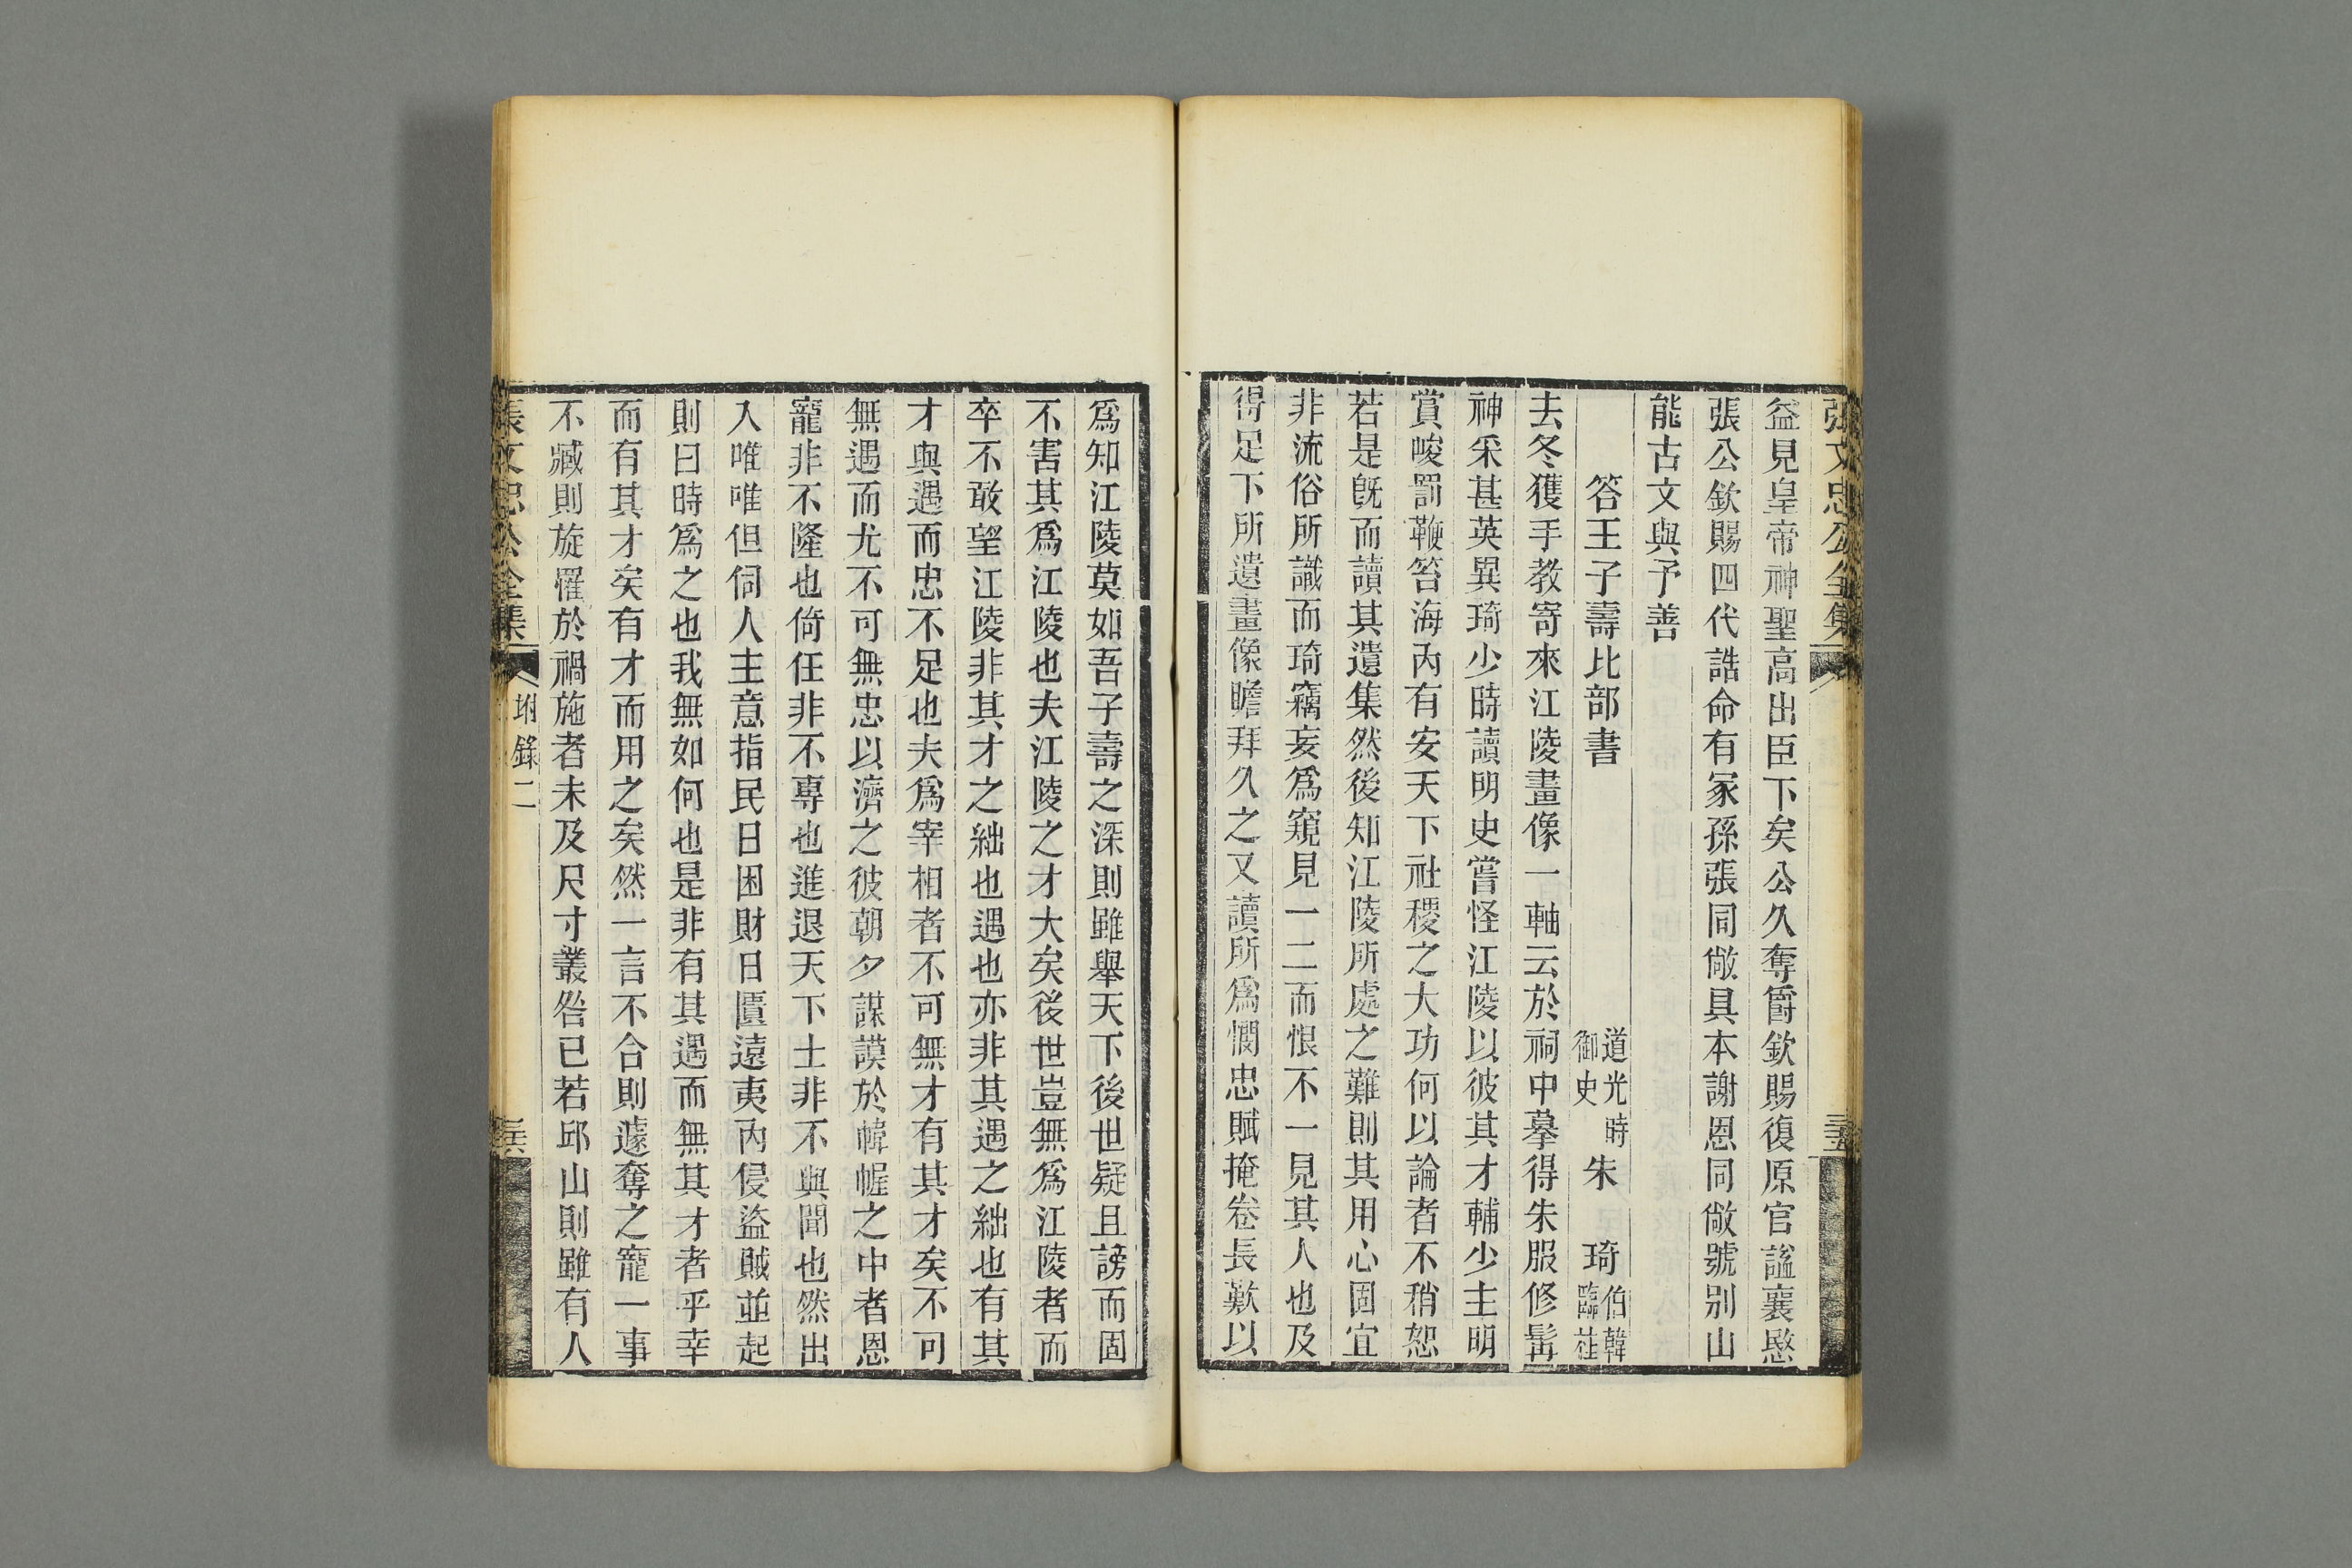 張文忠公全集
益見皇帝神聖高出臣下矣公久奪爵欽賜復原官諡襄愍
張公欽賜四代誥命有冢孫張同僘具本謝恩同僘號別山
能古文與予善
答王子壽比部書
道光時
御史
朱琦
伯韓
臨桂
去冬獲手教寄來江陵畫像一軸云於祠中摹得朱服修髯
神釆甚英異琦少時讀明史嘗怪江陵以彼其才輔少主明
賞峻罰鞭笞海內有安天下社稷之大功何以論者不稍恕
若是旣而讀其遺集然後知江陵所處之難則其用心固宜
非流俗所識而琦竊妄爲窺見一二而恨不一見其人也及
得足下所遺畫像瞻拜久之又讀所爲憫忠賦掩卷長歎以
爲知江陵莫如吾子壽之深則雖舉天下後世疑且謗而固
不害其爲江陵也夫江陵之才大矣後世豈無爲江陵者而
卒不敢望江陵非其才之絀也遇也亦非其遇之絀也有其
才與遇而忠不足也夫爲宰相者不可無才有其才矣不可
無遇而尤不可無忠以濟之彼朝夕謀謨於幃幄之中者恩
寵非不隆也倚任非不專也進退天下士非不與聞也然出
入唯唯但伺人主意指民日困財日匱遠夷內侵盜賊並起
則曰時爲之也我無如何也是非有其遇而無其才者乎幸
而有其才矣有才而用之矣然一言不合則遽奪之寵一事
不臧則旋罹於禍施者未及尺寸叢咎已若邱山則雖有人
張文忠公全集
坿錄二